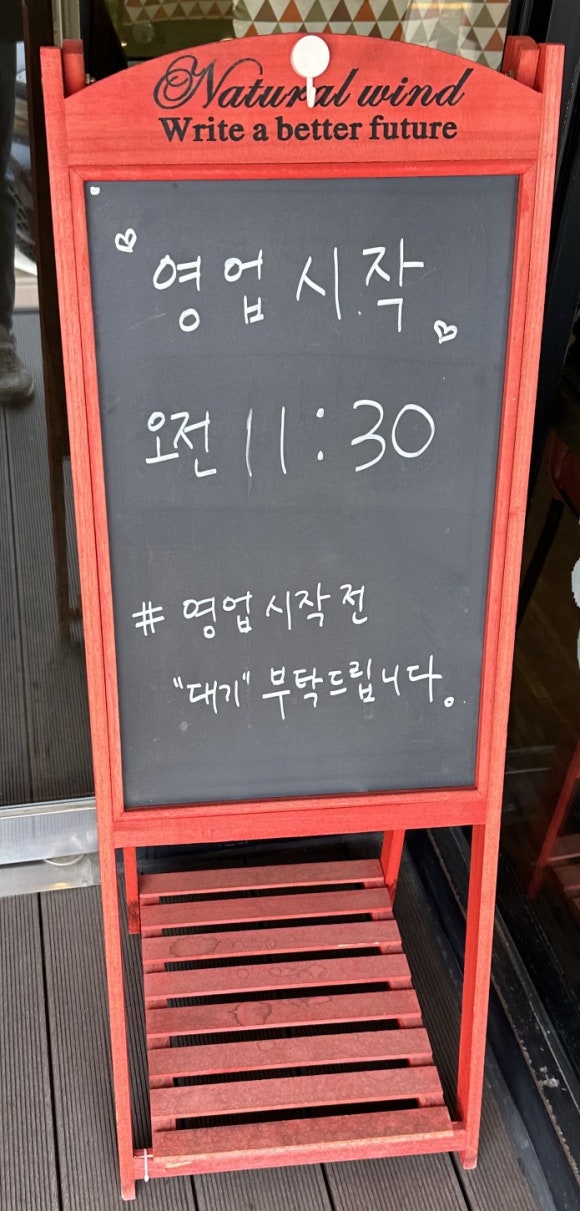 Natural wind
Write a better future
영업 시작
오전 11:30
# 영업 시작 전
"대기" 부탁드립니다.